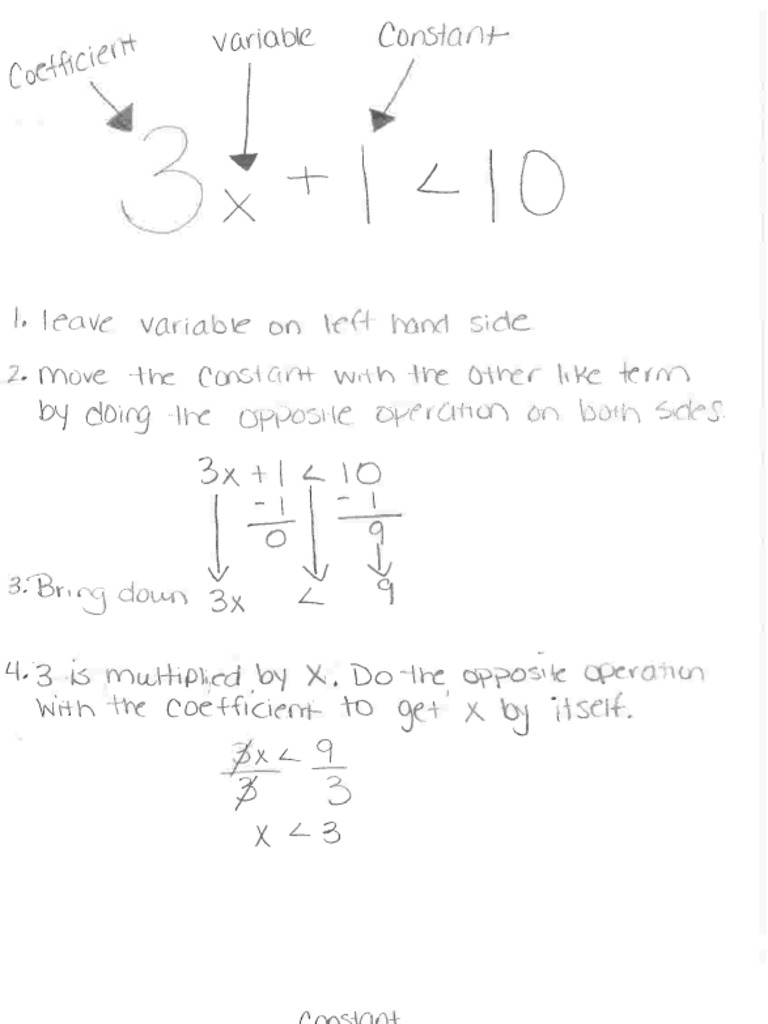 Coefficient variable Constant
3x + 1 < 10
1. leave variable on left hand side
2. move the constant with the other like term
by doing the opposite operation on both sides.
3x + 1 < 10
- 1 - 1
0 9
3. Bring down 3x < 9
4. 3 is multiplied by x. Do the opposite operation
with the coefficient to get x by itself.
3x < 9
3 3
x < 3
Constant